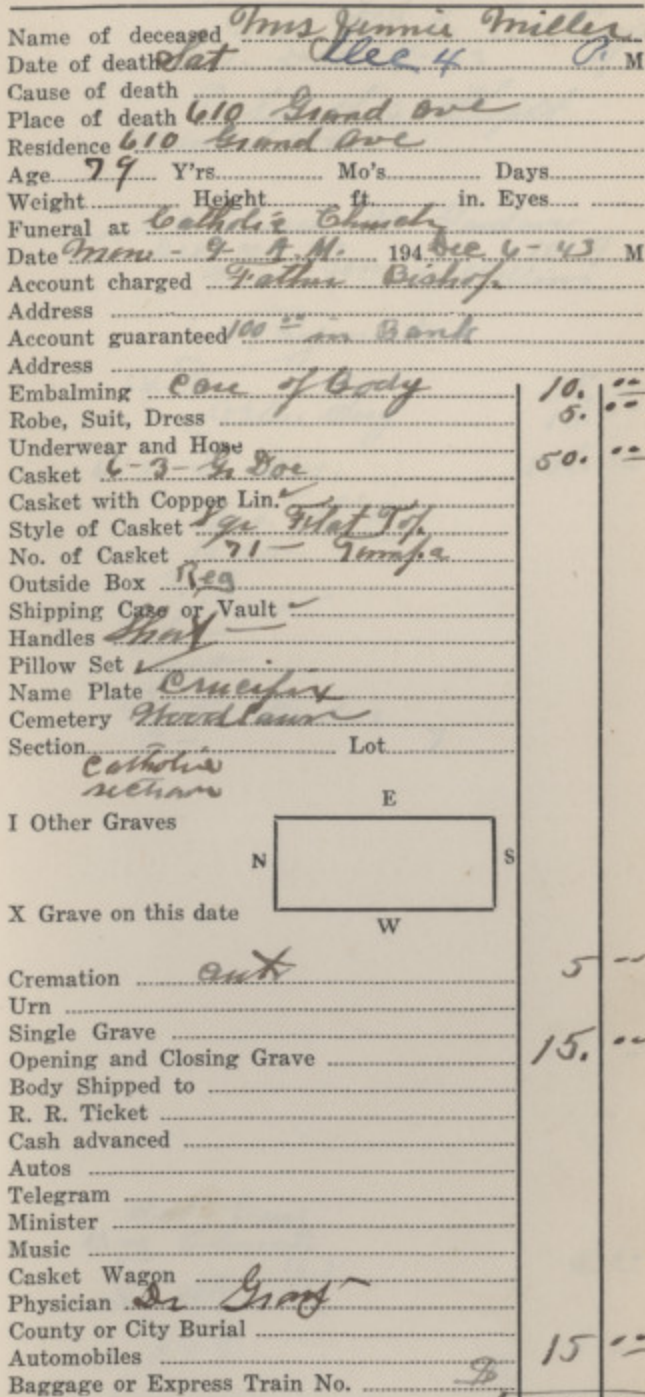 Name of deceased Mrs Jennie Miller
Date of death Sat Dec 4 P. M
Cause of death
Place of death 610 Grand Ave
Residence 610 Grand Ave
Age 79 Y'rs. Mo's. Days
Weight Height ft. in. Eyes
Funeral at Catholic Church
Date Mon - 9 A.M. 194 Dec 6 - 43 M
Account charged Father Bishop
Address
Account guaranteed 100 00 in Bank
Address
Embalming Care of Body 10. 00
Robe, Suit, Dress 5. 00
Underwear and Hose
Casket 6-3- Gr Doe 50. 00
Casket with Copper Lin.
Style of Casket Flat Top
No. of Casket 71 -
Outside Box Reg
Shipping Case or Vault -
Handles Short
Pillow Set ✓
Name Plate Crucifix
Cemetery Woodlawn
Section Lot
Catholic
section
E
I Other Graves
N S
X Grave on this date
W
Cremation 5 --
Urn
Single Grave
Opening and Closing Grave 15. 00
Body Shipped to
R. R. Ticket
Cash advanced
Autos
Telegram
Minister
Music
Casket Wagon
Physician Dr
County or City Burial
Automobiles 15 00
Baggage or Express Train No. $